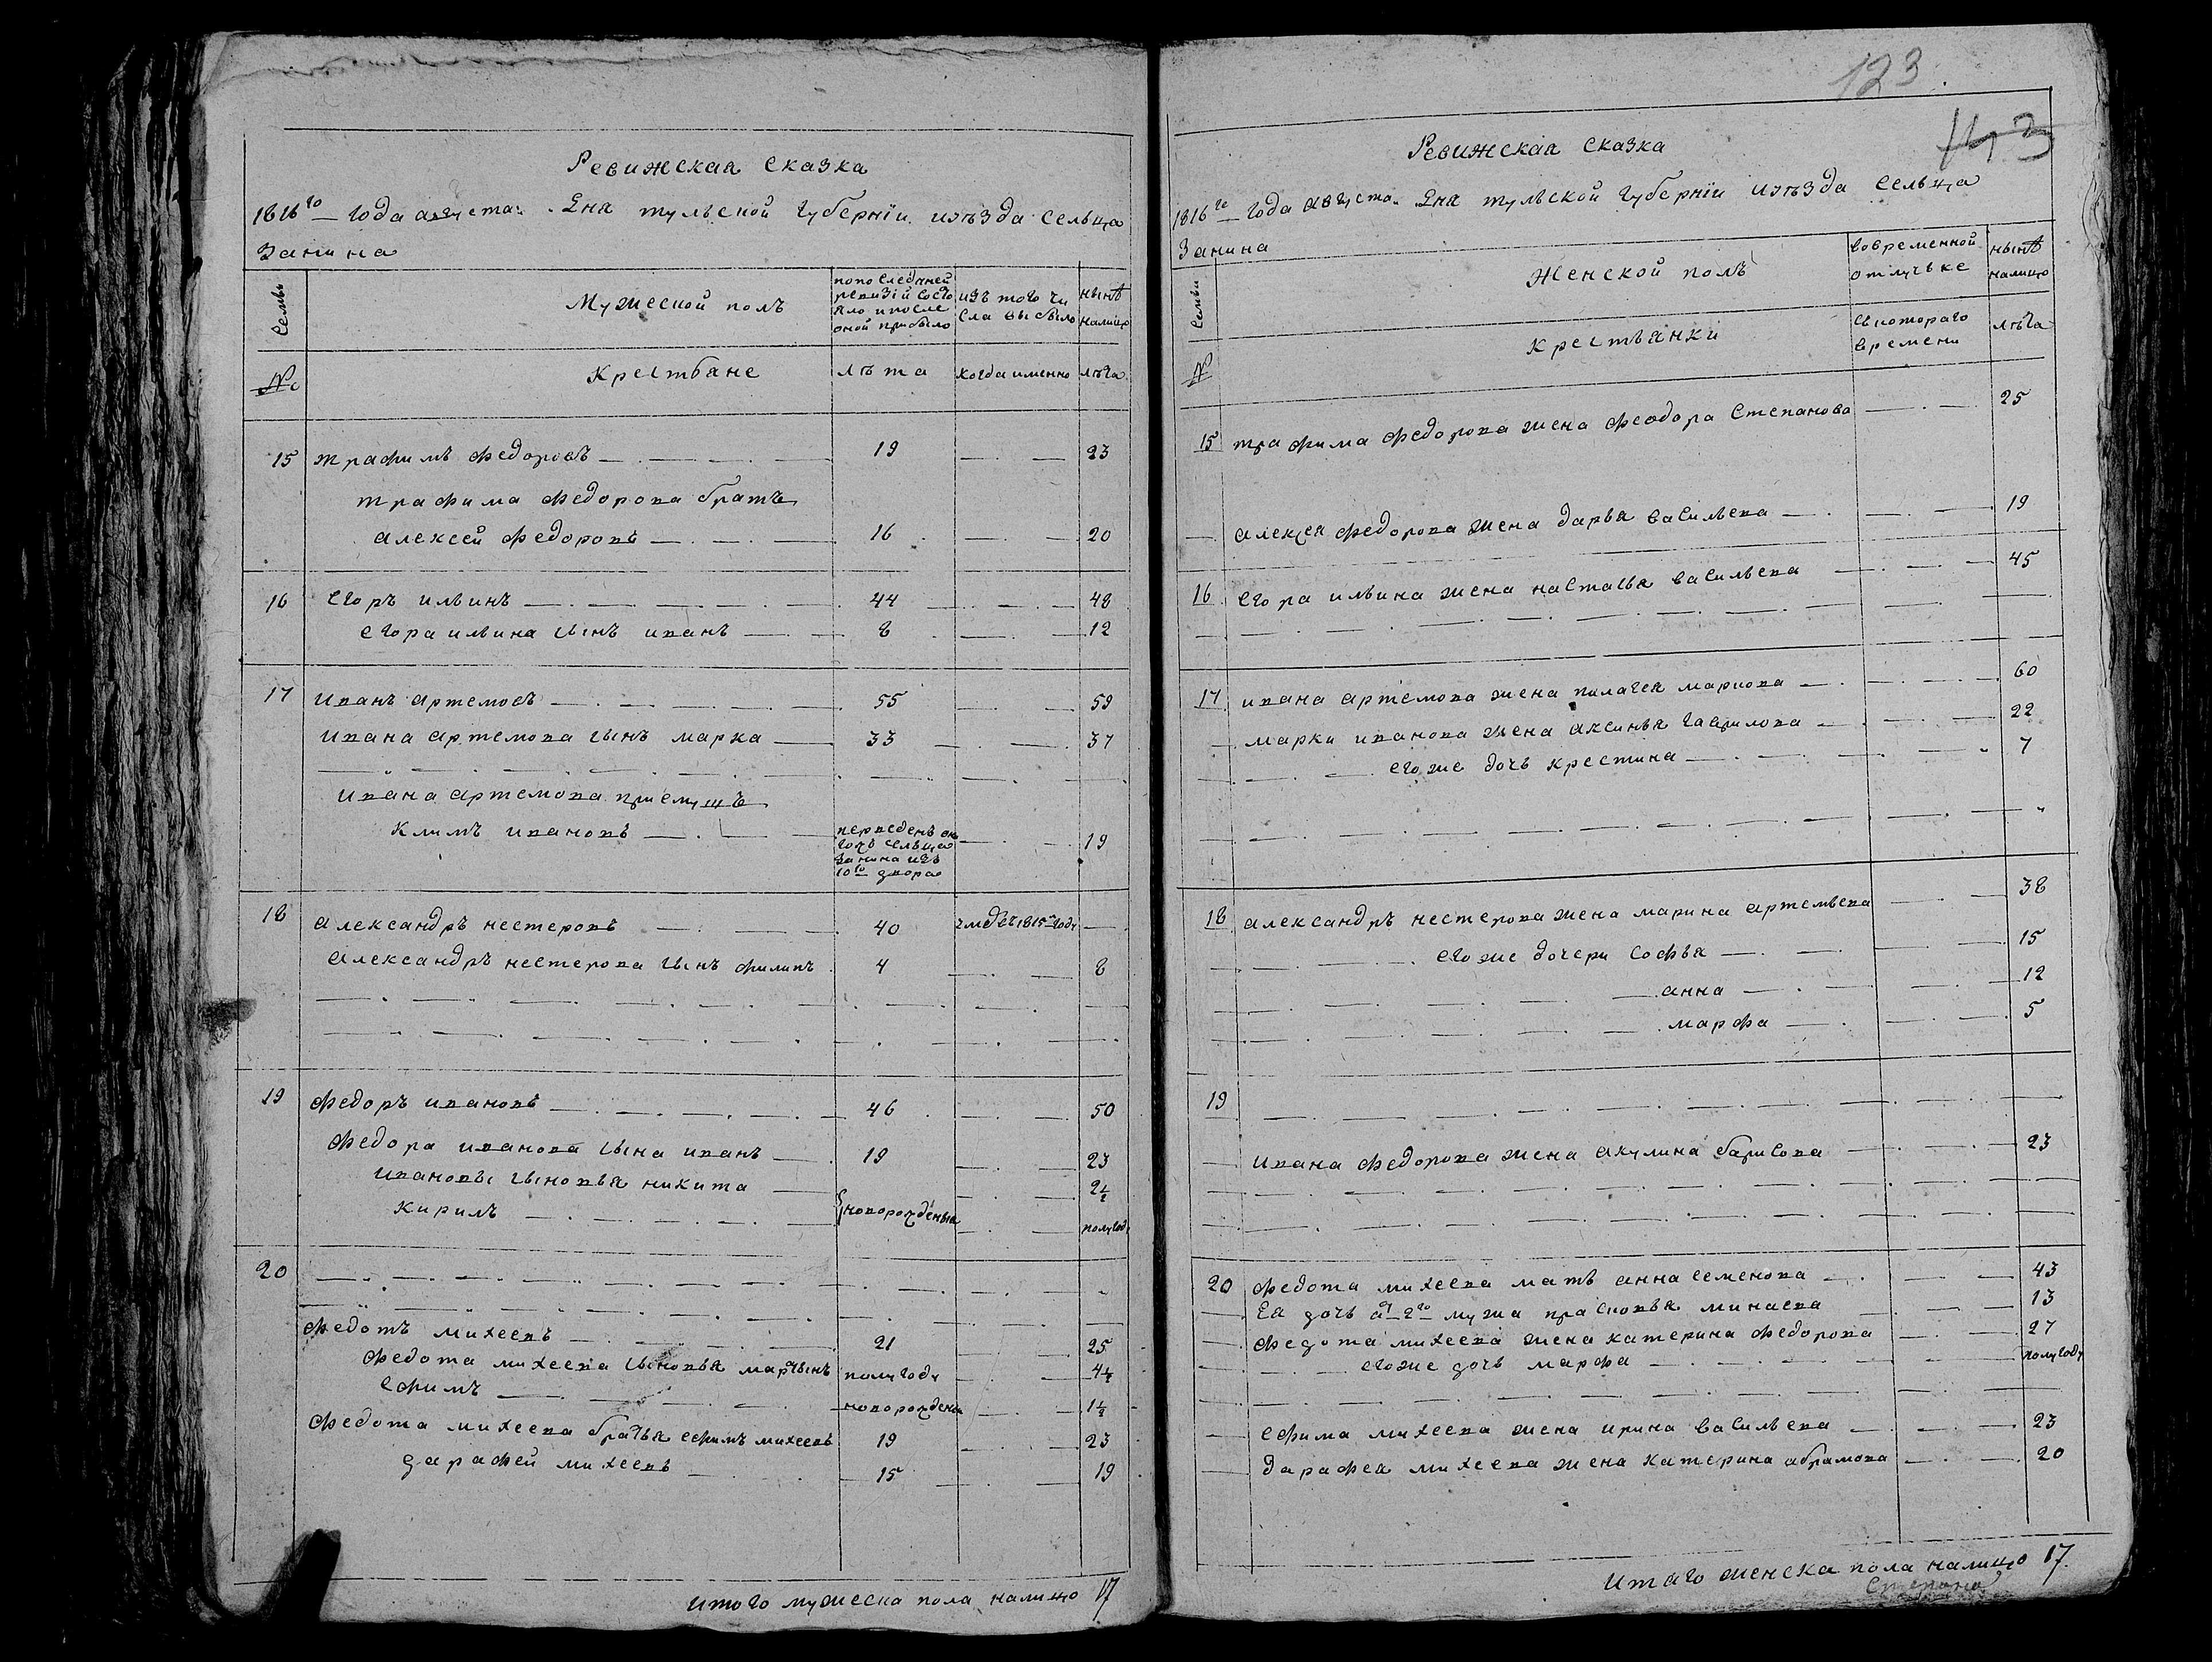 Ревижская сказка
1816го года августа дня тульской губернїи иуѣзда сельца
Занина
Семьи
Мужеской полъ
попоследней
ревизїи состо
яло и после
оной прибыло
изъ того чи
сла выбыло
нынѣ
налицо
№
Крестьяне
лѣта
когда именно
лѣта
15 трафимъ федоровъ 19 23
трафима федорова братъ
алексей федоровъ 16 20
16 егоръ ильинъ 44 48
егора ильина сынъ иванъ 8 12
17 иванъ артемовъ 55 59
ивана артемова сынъ марка 33 37
ивана артемова приемышъ
климъ ивановъ 19
переведенъ
сельца
занина изъ
10го двора
18 александръ нестеровъ 40 1815го году
александръ нестерова сынъ филипъ 4 8
19 федоръ ивановъ 46 50
федора иванова сына иванъ 19 23
ивановы сыновья никита 2½
кирилъ новорожденыя полугоду
20
федотъ михеевъ 21 25
федота михеева сыновья мартынъ полугоду 4½
ефимъ новорожденъ 1½
федота михеева братья ефимъ михеевъ 19 23
дарафей михеевъ 15 19
итого мужеска пола налицо 17
123
143
Ревижская сказка
1816го года августа дня тульской губернїи иуѣзда сельца
Занина
Семьи
Женской полъ
вовременной
отлучьке
нынѣ
налицо
№
крестьянки
скотораго
времени
лѣта
15 трафима федорова жена феодора степанова 25
алексея федорова жена дарья васильева 19
16 егора ильина жена настасья васильева 45
17 ивана артемова жена пилагея маркова 60
марки иванова жена аксинья гаврилова 22
егоже дочь крестина 7
18 александръ нестерова жена марина артемьева 38
егоже дочери софья 15
анна 12
марфа 5
19
ивана федорова жена акулина барисова 23
20 федота михеева мать анна семенова 43
Ея дочь от 2го мужа прасковья минаева 13
федота михеева жена катерина федорова 27
егоже дочь марфа полугоду
ефима михеева жена ирина васильева 23
дарафея михеева жена катерина абрамова 20
Итаго женска пола налицо 17.